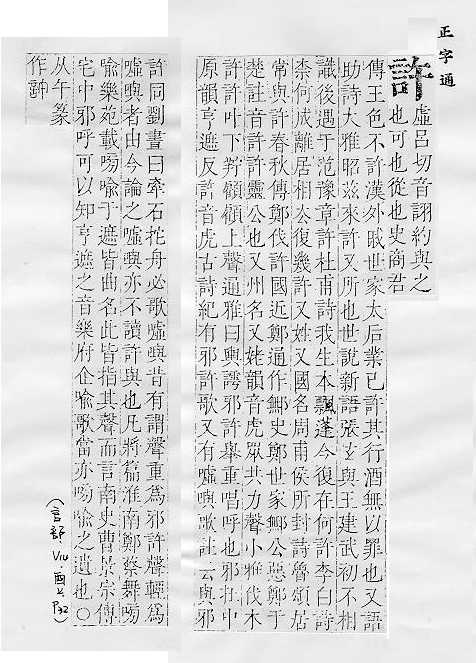 正字通
許
虛呂切音詡約與之
也可也從也史商君
傳王色不許漢外戚世家太后業已許其行酒無以罪也又語
助詩大雅昭茲來許又所也世說新語張玄與王建武初不相
識後遇于范豫章許杜甫詩我生本飄蓬今復在何許李白詩
柰何成離居相去復幾許又姓又國名周甫侯所封詩魯頌居
常與許春秋傳鄭伐許國近鄭通作鄦史鄭世家鄦公惡鄭于
楚註音許許靈公也又州名又姥韻音虎眾共力聲小雅伐木
許許叶下羜顧顧上聲通雅曰輿謣邪許舉重唱呼也邪在中
原韻亨遮反許音虎古詩紀有邪許歌又有噓嘳歌註云與邪
許同劉晝曰牽石拕舟必歌噓嘳昔有謂聲重為邪許聲輕為
噓嘳者由今論之噓嘳亦不讀許與也凡將篇淮南鄭蔡舞嗍
喩樂苑載嗍喩于遮皆曲名此皆指其聲而言南史曹景宗傳
宅中邪呼可以知亨遮之音樂府企喩歌當亦嗍喩之遺也○
从午篆
作
(言部 VIII 酉上 P32)